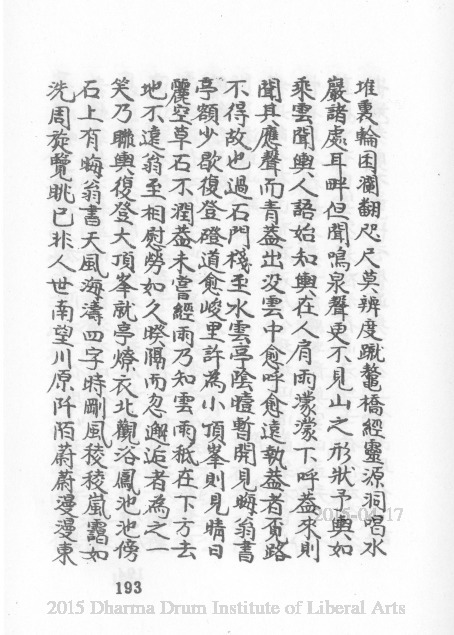 堆裏輪囷瀾翻咫尺莫辨度蹴鰲橋經靈源洞喝水
巖諸處耳畔但聞鳴泉聲更不見山之形狀予輿如
乘雲聞輿人語始知輿在人肩雨濛濛下呼葢來則
聞其應聲而青葢出沒雲中愈呼愈遠執葢者覓路
不得故也過石門棧至水雲亭陰曀暫開見晦翁書
亭額少歇復登磴道愈峻里許為小頂峯則見晴日
麗空草石不潤葢未嘗經雨乃知雲雨秪在下方去
地不遠翁至相慰勞如久暌隔而忽邂逅者為之一
笑乃聯輿復登大頂峯就亭燎衣北觀浴鳳池池傍
石上有晦翁書天風海濤四字時剛風稜稜嵐靄如
洗周旋覽眺已非人世南望川原阡陌蔚蔚漫漫東
193
2015-04-17
2015 Dharma Drum Institute of Liberal Arts